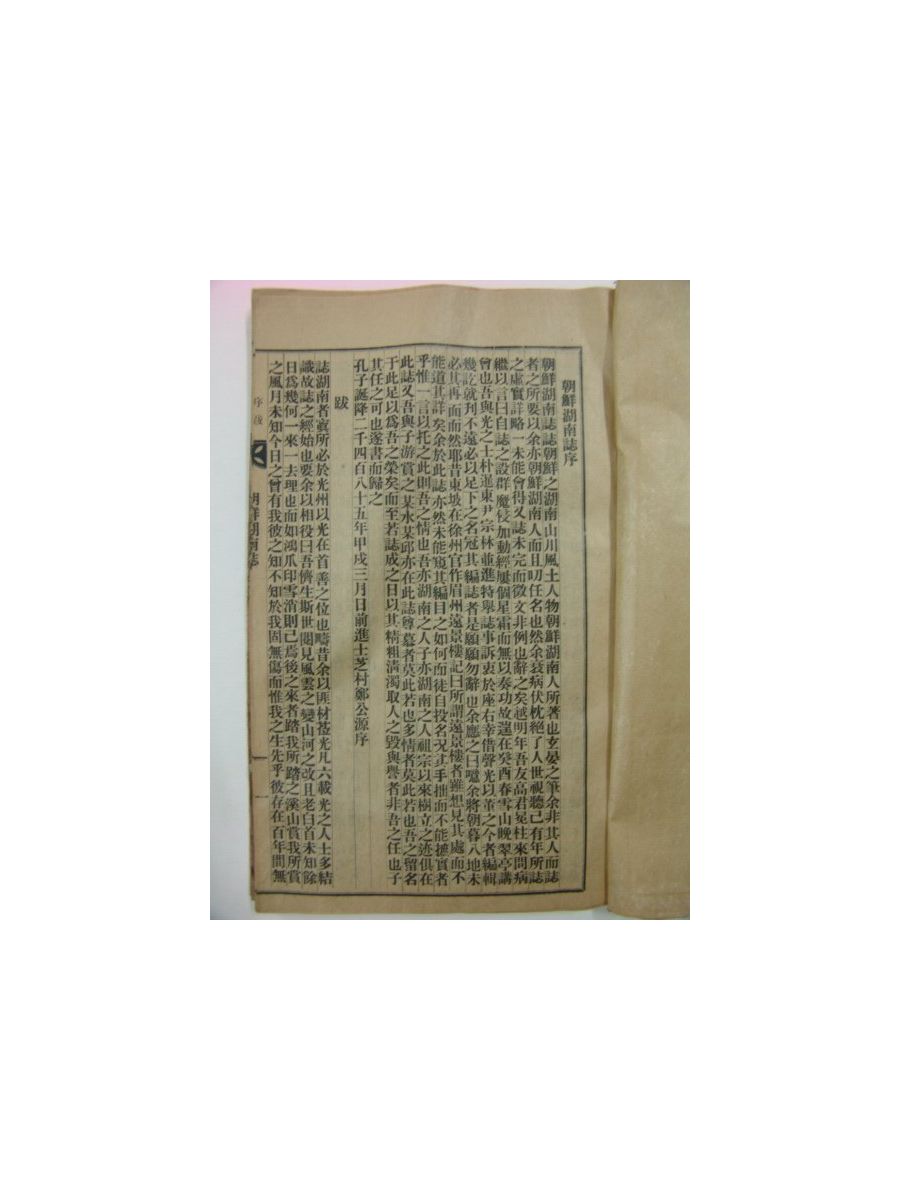 朝鮮湖南誌序
朝鮮湖南誌誌朝鮮之湖南山川風土人物朝鮮湖南人所著也玄晏之筆余非其人而誌
者之所要以余亦朝鮮湖南人而且叨任名也然余衰病伏枕絕了人世視聽已有年所誌
之虛實詳略一未能會得又誌未完而徵文非例也辭之矣越明年吾友高君冕柱來問病
繼以言曰自誌之設群魔侵加動經屢個星霜而無以奏功故遑在癸酉春雪山晚翠亭講
曾也吾與光之士朴進東尹宗林並進特舉誌事訴衷於座右幸借聲光以董之今者編輯
幾訖就刋不遠必以足下之名冠其編誌者是願願勿辭也余應之曰噫余將朝暮入地未
必其再而而然耶昔東坡在徐州官作眉州遠景樓記曰所謂遠景樓者雖想見其處而不
能道其詳矣余於此誌亦然未能窺其編目之如何而徒自投名况其手拙而不能摭實者
乎惟一言以托之此則吾之情也吾亦湖南之人子亦湖南之人祖宗以來樹立之迹俱在
此誌又吾與子游賞之某水某邱亦在此誌尊慕者莫此若也多情者莫此若也吾之留名
于此足以爲吾之榮矣而至若誌成之日以其精粗清濁取人之毀與譽者非吾之任也子
其任之可也遂書而歸之
孔子誕降二千四百八十五年甲戌三月日前進士芝村鄭公源序
跋
誌湖南者寔所必於光州以光在首善之位也疇昔余以匪材莅光凡六載光之人士多結
識故誌之經始也要余以相役曰吾儕生斯世閱見風雲之變山河之改且老白首未知餘
日爲幾何一來一去理也而如鴻爪印雪消則已焉後之來者踏我所踏之溪山賞我所賞
之風月未知今日之曾有我彼之知不知於我固無傷而惟我之生先乎彼存在百年間無
朝鮮湖南誌
序跋
一